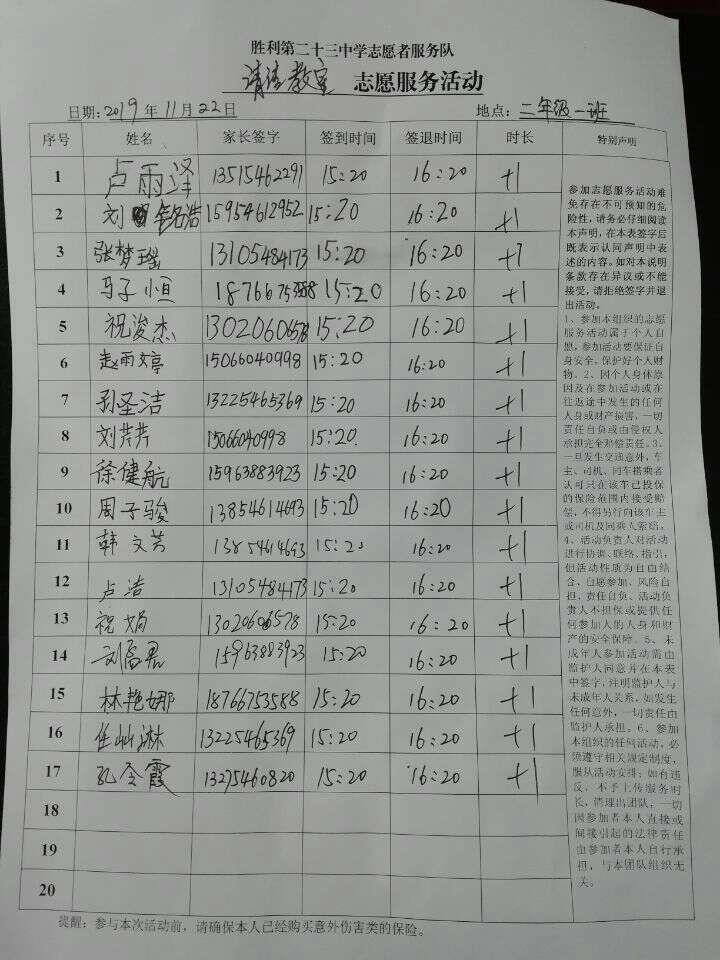 胜利第二十三中学志愿者服务队
清洁教室 志愿服务活动
日期:2019年11月22日 地点:二年级一班
序号 姓名 家长签字 签到时间 签退时间 时长 特别声明
1 卢雨泽 13515462291 15:20 16:20 +1
2 刘铭浩 15954612952 15:20 16:20 +1
3 张梦瑶 13105484173 15:20 16:20 +1
4 马子恒 15:20 16:20 +1
5 祝浚杰 15:20 16:20 +1
6 赵雨婷 15066040998 15:20 16:20 +1
7 孙圣洁 13225465369 15:20 16:20 +1
8 刘芹芹 15066040998 15:20 16:20 +1
9 徐健航 15963883923 15:20 16:20 +1
10 周子骏 13854614693 15:20 16:20 +1
11 韩文芳 13854614693 15:20 16:20 +1
12 卢洁 13105484173 15:20 16:20 +1
13 祝娟 13020606578 15:20 16:20 +1
14 15963883923 15:20 16:20 +1
15 林艳娜 18766753588 15:20 16:20 +1
16 任灿淋 13225465369 15:20 16:20 +1
17 孔令霞 13275460820 15:20 16:20 +1
18
19
20
参加志愿服务活动难
免存在不可预知的危
险性,请务必仔细阅读
本声明,在本表签字后
既表示认同声明中表
述的内容。如对本说明
条款存在异议或不能
接受,请拒绝签字并退
出活动。
1、参加本组织的志愿
服务活动属于个人自
愿,参加活动要保证自
身安全,保护好个人财
物。2、因个人身体原
因及在参加活动或在
往返途中发生的任何
人身或财产损害,一切
责任自负或由侵权人
承担完全赔偿责任。3、
一旦发生交通意外,车
主、司机、同车搭乘者
认可只在该车已投保
的保险范围内接受赔
偿,不得另行向该车主
或司机及同乘人索赔。
4、活动负责人对活动
进行协调、联络、指引,
但活动性质为自由结
合、自愿参加、风险自
担、责任自负、活动负
责人不担保或提供任
何参加人的人身和财
产的安全保障。5、未
成年人参加活动需由
监护人同意并在本表
中签字,注明监护人与
未成年人关系,如发生
任何意外,一切责任由
监护人承担。6、参加
本组织的任何活动,必
须遵守相关规定制度,
服从活动安排;如有违
反,不予上传服务时
长,清理出团队,一切
因参加者本人直接或
间接引起的法律责任
由参加者本人自行承
担,与本团队组织无
关。
提醒:参与本次活动前,请确保本人已经购买意外伤害类的保险。